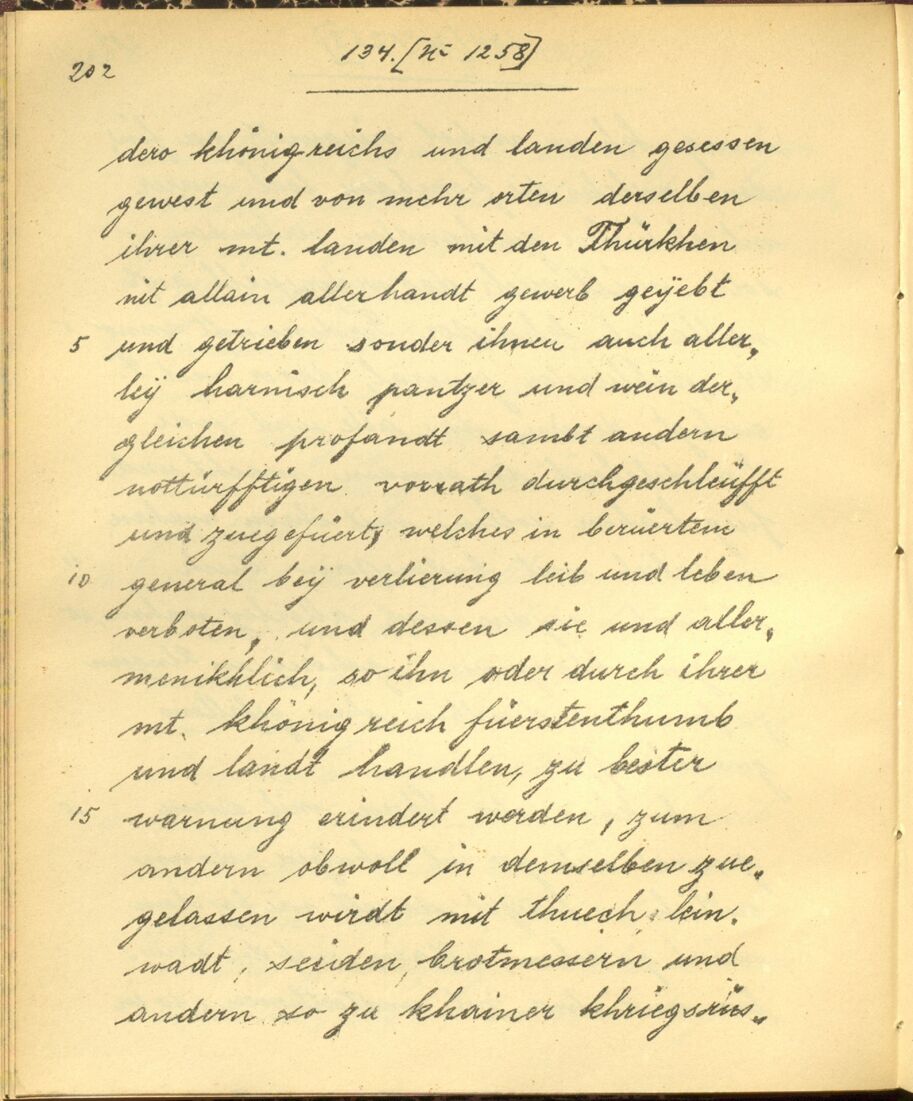 202
134. [N= 1258]
dero khönigreichs und landen gesessen
gewest und von mehr orten derselben
ihrer mt. landen mit den Thürkhen
nit allain allerhandt gewerb geÿebt
5 und getrieben sonder ihnen auch aller„
leÿ harnisch pantzer und wein der„
gleichen profandt sambt andern
nottürfftigen vorrath durchgeschleüfft
und zuegefüert, welches in berüertem
10 general beÿ verlierung leib und leben
verboten, und dessen sie und aller„
menikhlich, so ihn oder durch ihrer
mt. khönigreich füerstenthumb
und landt handlen, zu bester
15 warnung erindert werden, zum
andern obwoll in demselben zue„
gelassen wirdt mit thuech, lein„
wadt, seiden, brotmessern und
andern so zu khainer khriegsrüs„